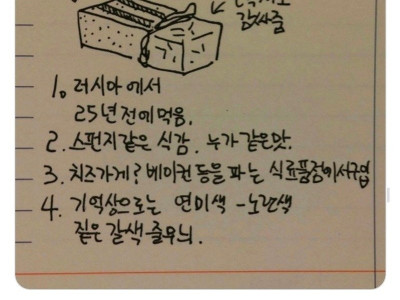 감싸줌
1. 러시아에서
25년전에 먹음.
2. 스펀지같은 식감. 누가같은맛.
3. 치즈가게? 베이컨 등을 파는 식료품점에서 구입
4. 기억상으로는 연미색 - 노란색
짙은 갈색 줄무늬.